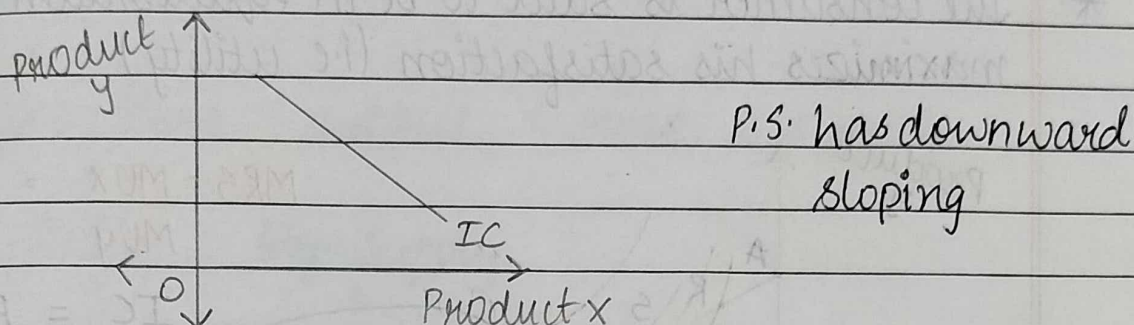 Product
y
P.S. has downward
sloping
IC
O
Product x